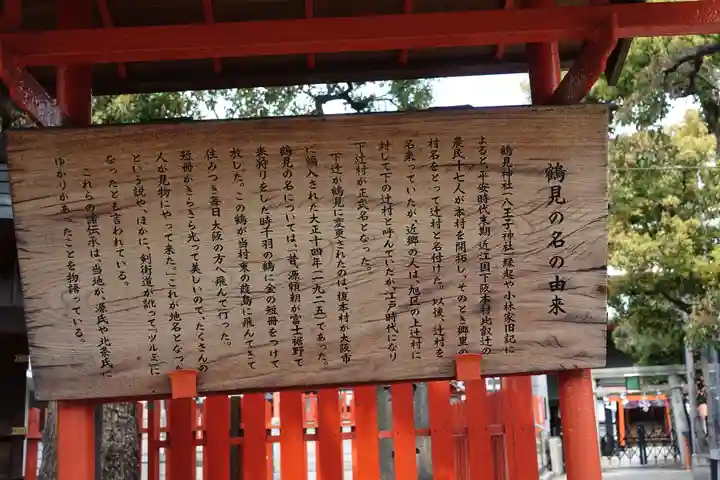 鶴見の名の由来
鶴見神社(八王子神社)縁起や小林家旧記に
よると、平安時代末期、近江国下阪本村比叡辻の
農民十七人が本村を開拓し、そのとき郷里の
村名をとって辻村と名付けた。以後、辻村を
名乗っていたが、近郷の人は旭区の上辻村に
対して下の辻村と呼んでいたが、江戸時代になり
下辻村が正式名となった。
下辻が鶴見に変更されたのは、榎本村が大阪市
に編入された大正十四年(一九二五)であった。
鶴見の名については、昔、源頼朝が富士裾野で
巻狩りをした時千羽の鶴に金の短冊をつけて
放した。この鶴が当村東の葭島に飛んできて
住みつき毎日大阪の方へ飛んで行った。
短冊がきらきら光って美しいので、たくさんの
人が見物にやって来た。「これが地名となった」
という説や、ほかに、剣術道が訛って「ツルミ」に
なったとも言われている。
これらの諸伝承は、当地が、源氏や北条氏に
ゆかりがあったことを物語っている。